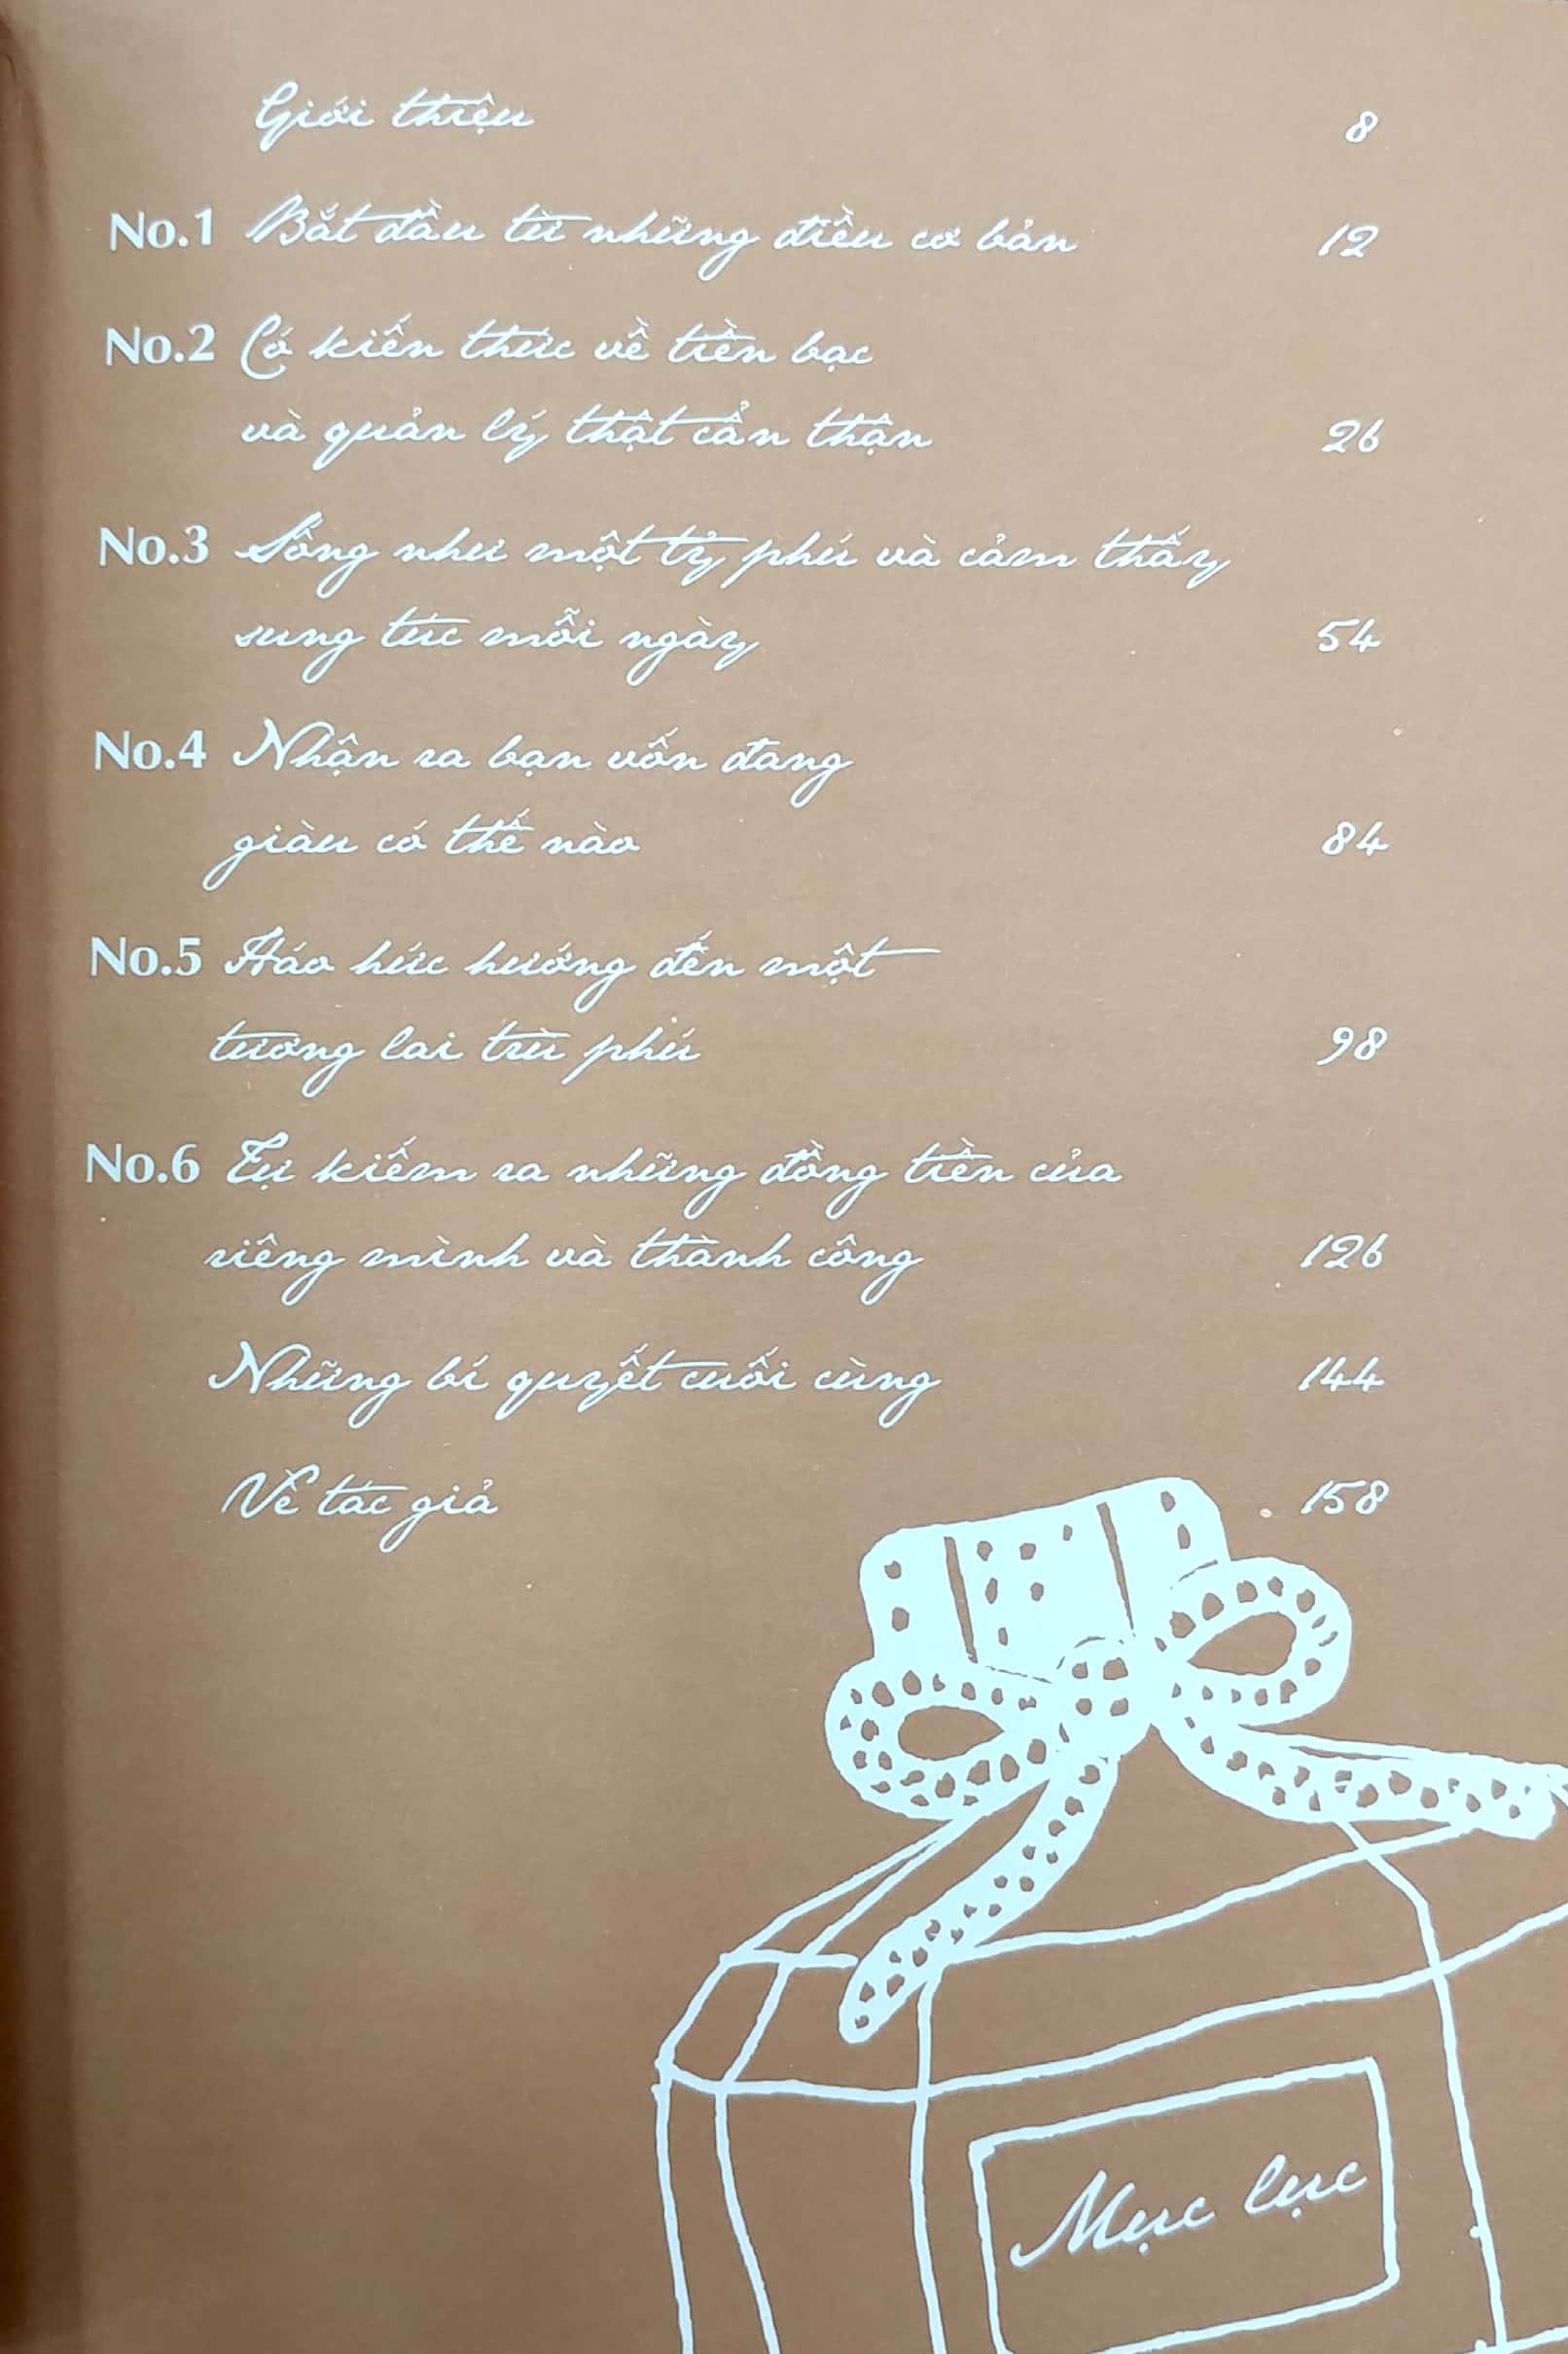 Giới thiệu 8
No.1 Bắt đầu từ những điều cơ bản 12
No.2 Có kiến thức về tiền bạc
và quản lý thật cẩn thận 26
No.3 Sống như một tỷ phú và cảm thấy
sung túc mỗi ngày 54
No.4 Nhận ra bạn vốn đang
giàu có thế nào 84
No.5 Háo hức hướng đến một
tương lai trù phú 98
No.6 Tự kiếm ra những đồng tiền của
riêng mình và thành công 126
Những bí quyết cuối cùng 144
Về tác giả 158
Mục lục